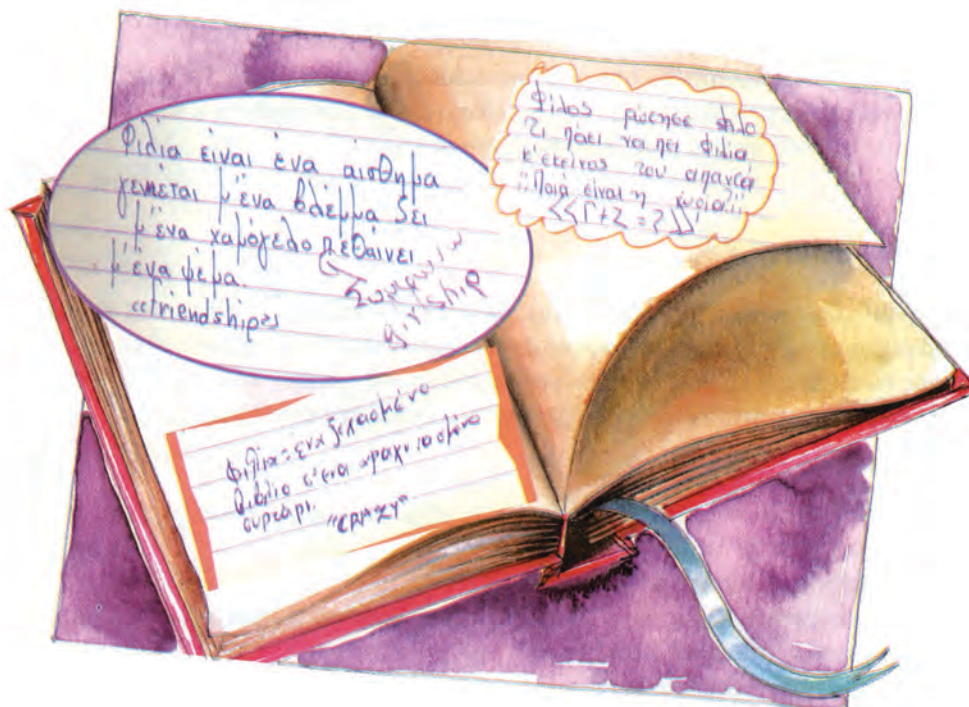 Φιλία είναι ένα αίσθημα
γεννιέται μ'ένα βλέμμα ζει
μ'ένα χαμόγελο πεθαίνει
μ'ένα ψέμα.
«friendship»
Συμφωνώ
girlship
Φίλος ρώτησε φίλο
τι πάει να πει φιλία
κ'εκείνος του απαντά
"Ποιά είναι η κυρία;"
<<Γ+Ζ=?>>
Φιλία= ένα ξεχασμένο
βιβλίο σ'ένα αραχνιασμένο
συρτάρι.
"CRAZY"